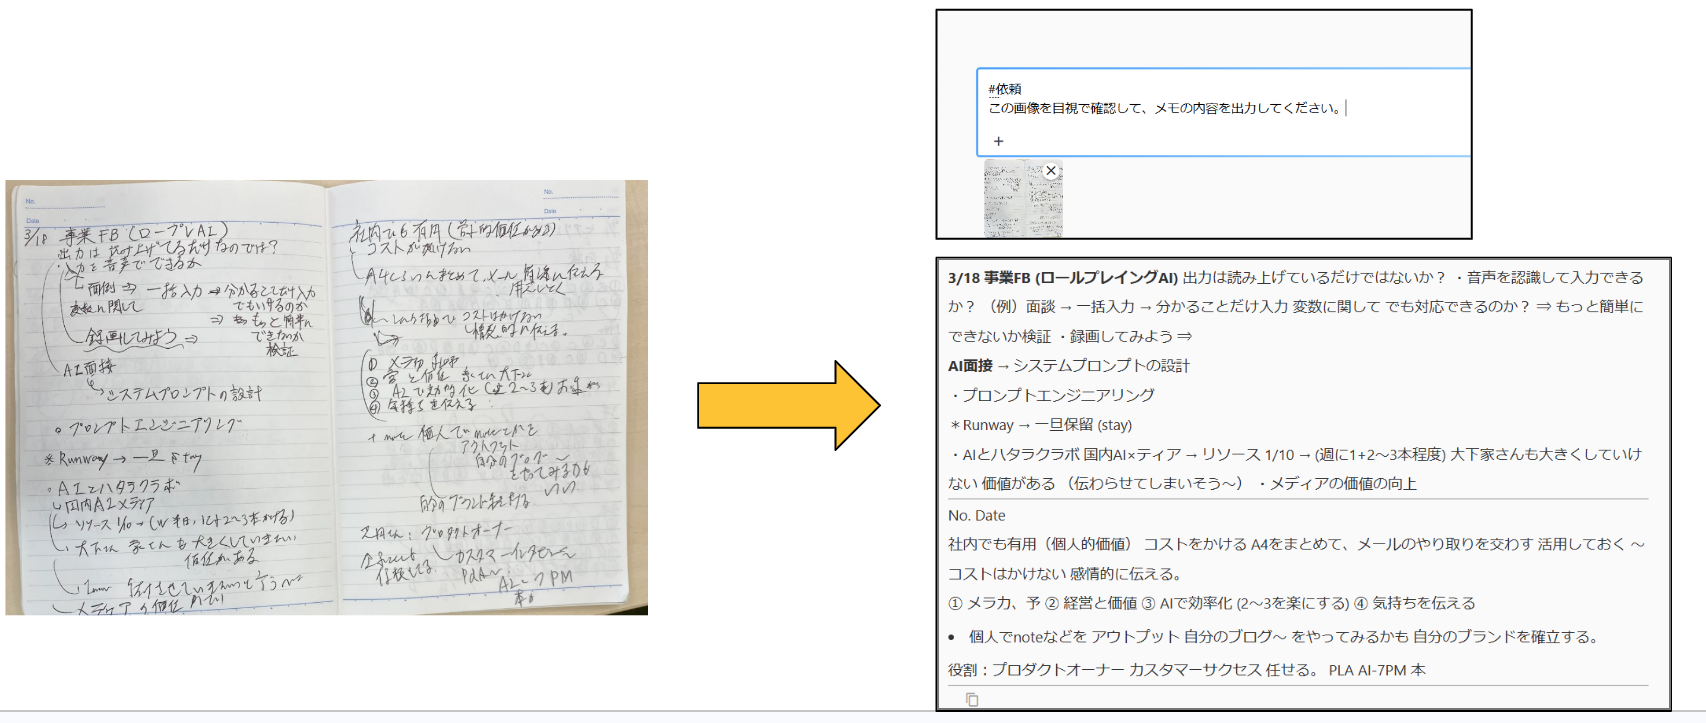 No.
Date
3/18 事業FB (ロープレAI)
出力は読み上げてるだけなのでは?
入力を音声でできるか
面倒 ⇒ 一括入力 → 分かることだけ入力
変数に関して でもいけるのか
⇒ もっと簡単に
録画してみよう ⇒ できないか
検証
AI面接
システムプロンプトの設計
・プロンプトエンジニアリング
※ Runway → 一旦 stay
・AIとハタラクラボ
国内AIメディア
リソース 1/10 →
大きくしていきたい
価値がある
メディアの価値
No.
Date
社内でも有用
コストが
A4 まとめて、メール
コストはかけない
①
② 価値
③ AIで効率化 2~3
④ 気持ちを伝える
+ note 個人でnoteとかを
アウトプット
自分のブログ~
をやってみるかも
いい
自分のブランド
プロダクトオーナー
カスタマー
PM
#依頼
この画像を目視で確認して、メモの内容を出力してください。
+
3/18 事業FB (ロールプレイングAI) 出力は読み上げているだけではないか? ・音声を認識して入力できる
か? (例)面談 → 一括入力 → 分かることだけ入力 変数に関して でも対応できるのか? ⇒ もっと簡単に
できないか検証 ・録画してみよう ⇒
AI面接 → システムプロンプトの設計
・プロンプトエンジニアリング
*Runway → 一旦保留 (stay)
・AIとハタラクラボ 国内AI×ティア → リソース 1/10 → (週に1+2~3本程度) 大下家さんも大きくしていけ
ない 価値がある (伝わらせてしまいそう~) ・メディアの価値の向上
No. Date
社内でも有用(個人的価値) コストをかける A4をまとめて、メールのやり取りを交わす 活用しておく ~
コストはかけない 感情的に伝える。
① メラ力、予 ② 経営と価値 ③ AIで効率化 (2~3を楽にする) ④ 気持ちを伝える
• 個人でnoteなどを アウトプット 自分のブログ~ をやってみるかも 自分のブランドを確立する。
役割:プロダクトオーナー カスタマーサクセス 任せる。 PLA AI-7PM 本